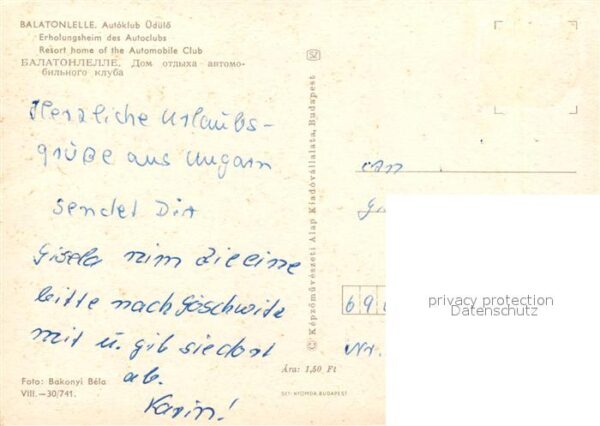 BALATONLELLE. Autóklub Üdülő
Erholungsheim des Autoclubs
Resort home of the Automobile Club
БАЛАТОНЛЕЛЛЕ. Дом отдыха автомо-
бильного клуба
Herzliche Urlaubs-
grüße aus Ungarn
sendet Dir
Gisela nim die eine
bitte nach Göschwitz
mit u. gib sie dort
ab.
Karin!
Foto: Bakonyi Béla
VIII.—30/741.
© Képzőművészeti Alap Kiadóvállalata, Budapest
An
69
Nr.
Ára: 1,50 Ft
SZT-NYOMDA, BUDAPEST
privacy protection
Datenschutz